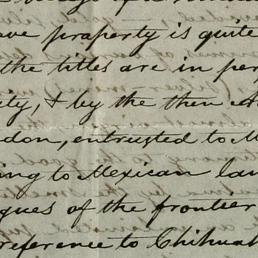 ave praperty is quite
the titles are in per
ity, & by the then A
don, entrusted to M
ing to Mexican law
gues of the frontier
reference to Chihuah